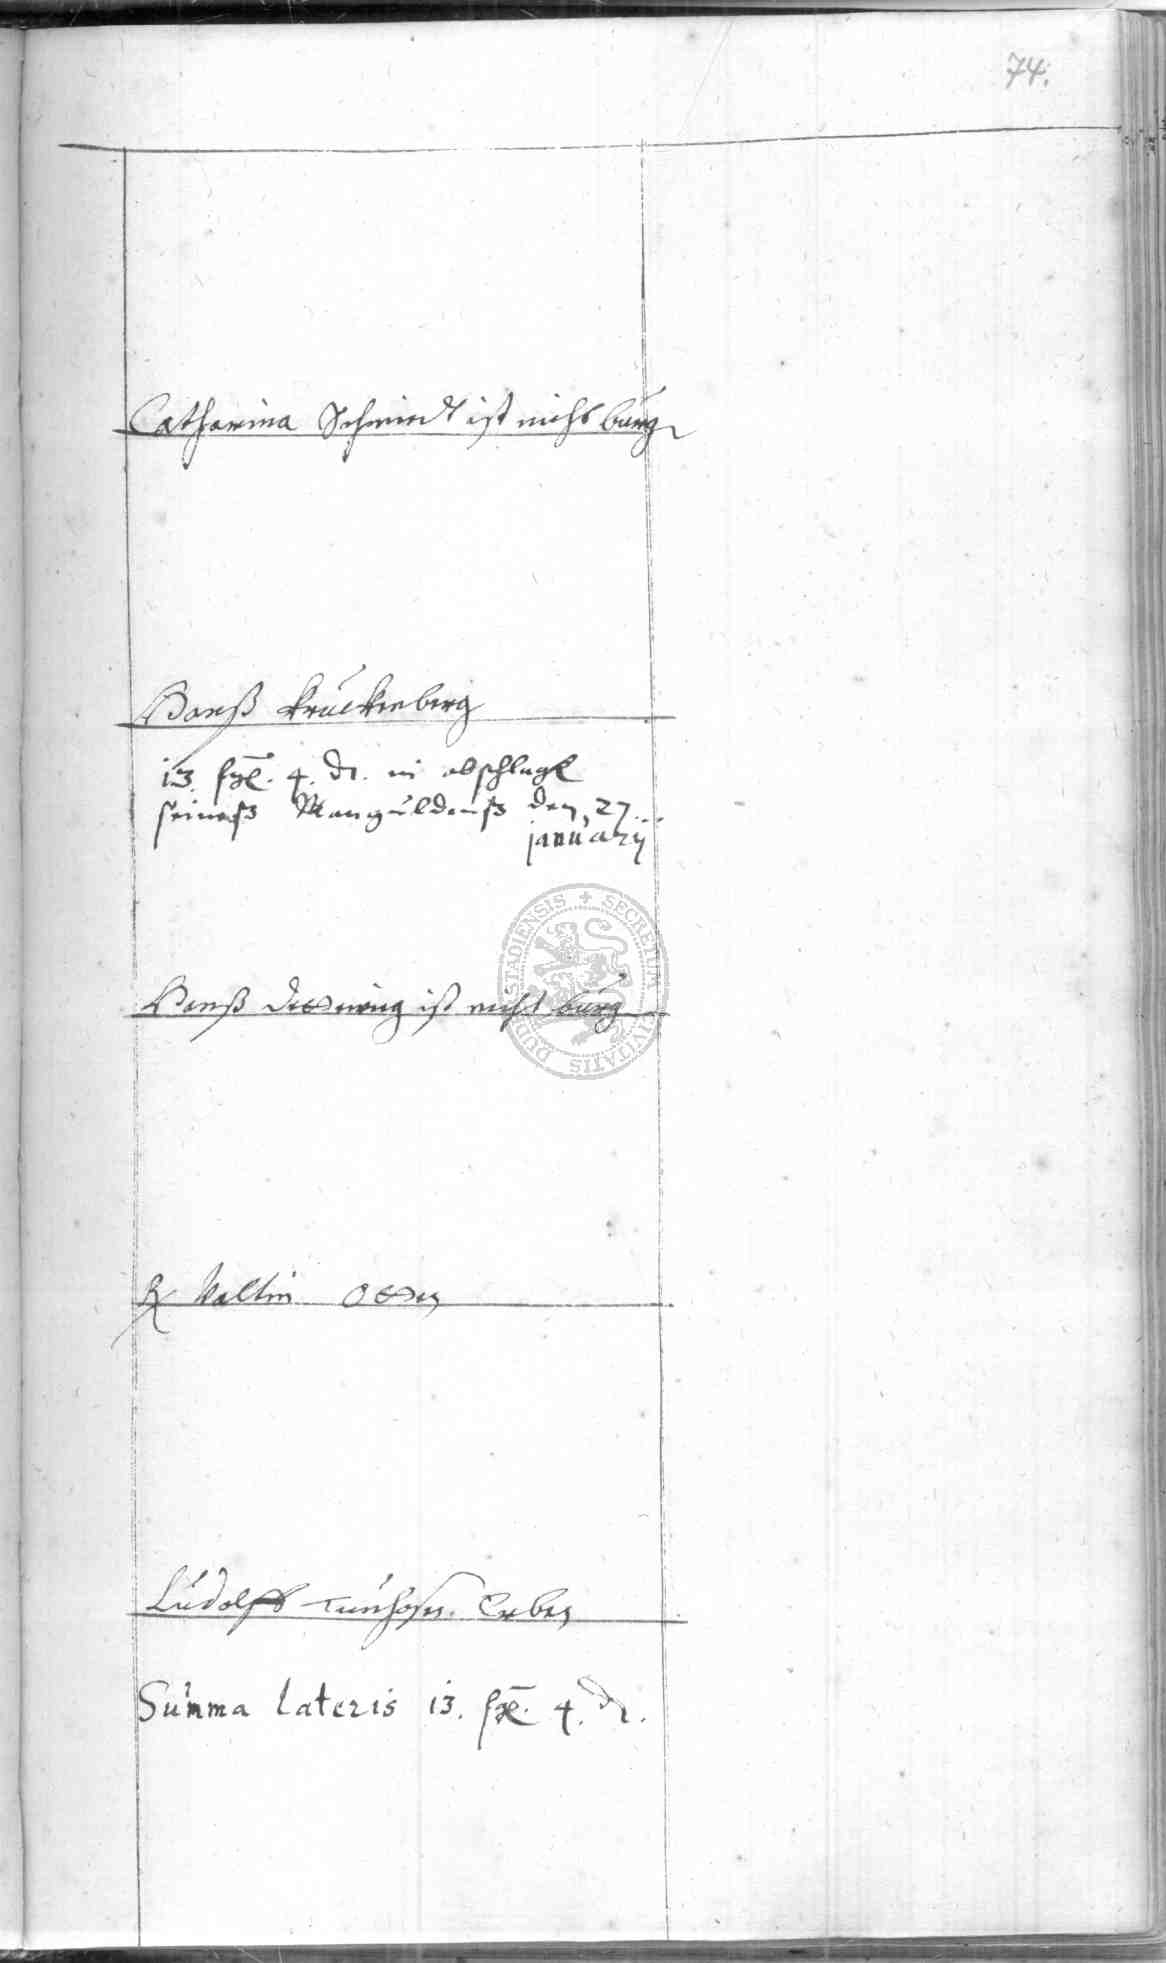 74.
Catharina Schmidt ist nicht burg
Hanß Kruckenberg
13. ßgl. 4. d. in abschlagk
seineß Manguldenß den 27
january
Hanß ist nicht burg
Valtin
Ludolff Erben
Summa lateris 13. ßgl. 4. d.
SECRETUM CIVITATIS DUDERSTADIENSIS